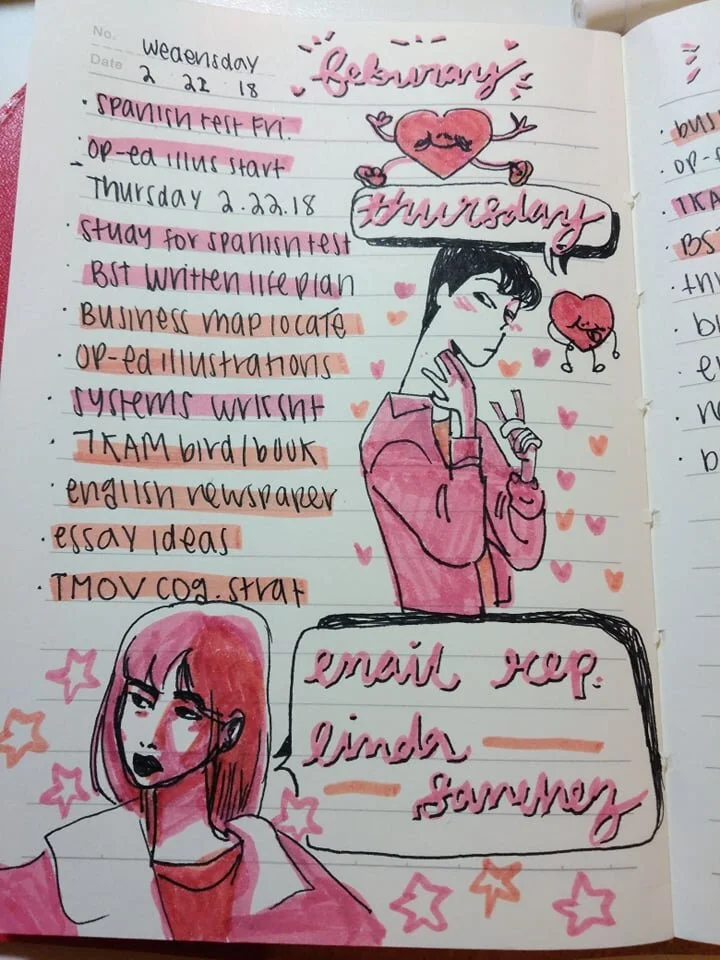 No.
Date
Wednesday
2 21 18
• Spanish test Fri.
• OP-ed illus start
Thursday 2.22.18
• study for spanish test
• BST written life plan
• Business map locate
• OP-ed illustrations
• systems wrksht
• TKAM bird/book
• english newspaper
• essay ideas
• TMOV cog. strat
feburary
thursday
email rep.
linda
sanchez
• busi
• op-
• TKA
• BS
• th
• bu
• e
• n
• b